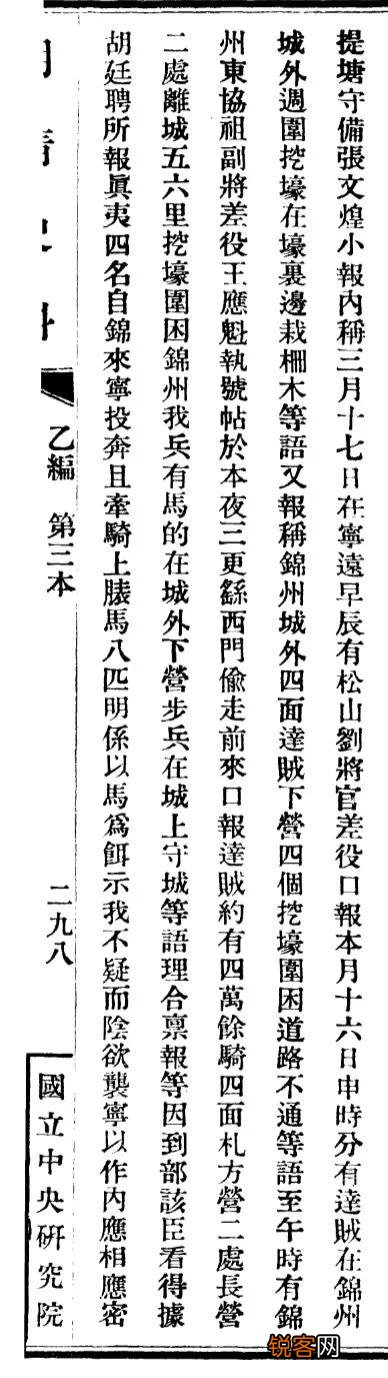 提塘守備張文煌小報內稱三月十七日在寧遠早辰有松山劉將官差役口報本月十六日申時分有達賊在錦州
城外週圍挖壕在壕裏邊栽柵木等語又報稱錦州城外四面達賊下營四個挖壕圍困道路不通等語至午時有錦
州東協祖副將差役王應魁執號帖於本夜三更繇西門偷走前來口報達賊約有四萬餘騎四面札方營二處長營
二處離城五六里挖壕圍困錦州我兵有馬的在城外下營步兵在城上守城等語理合禀報等因到部該臣看得據
胡廷聘所報眞夷四名自錦來寧投奔且牽騎上膘馬八匹明係以馬爲餌示我不疑而陰欲襲寧以作內應相應密
乙編 第三本
二九八
國立中央硏究院
锐客网